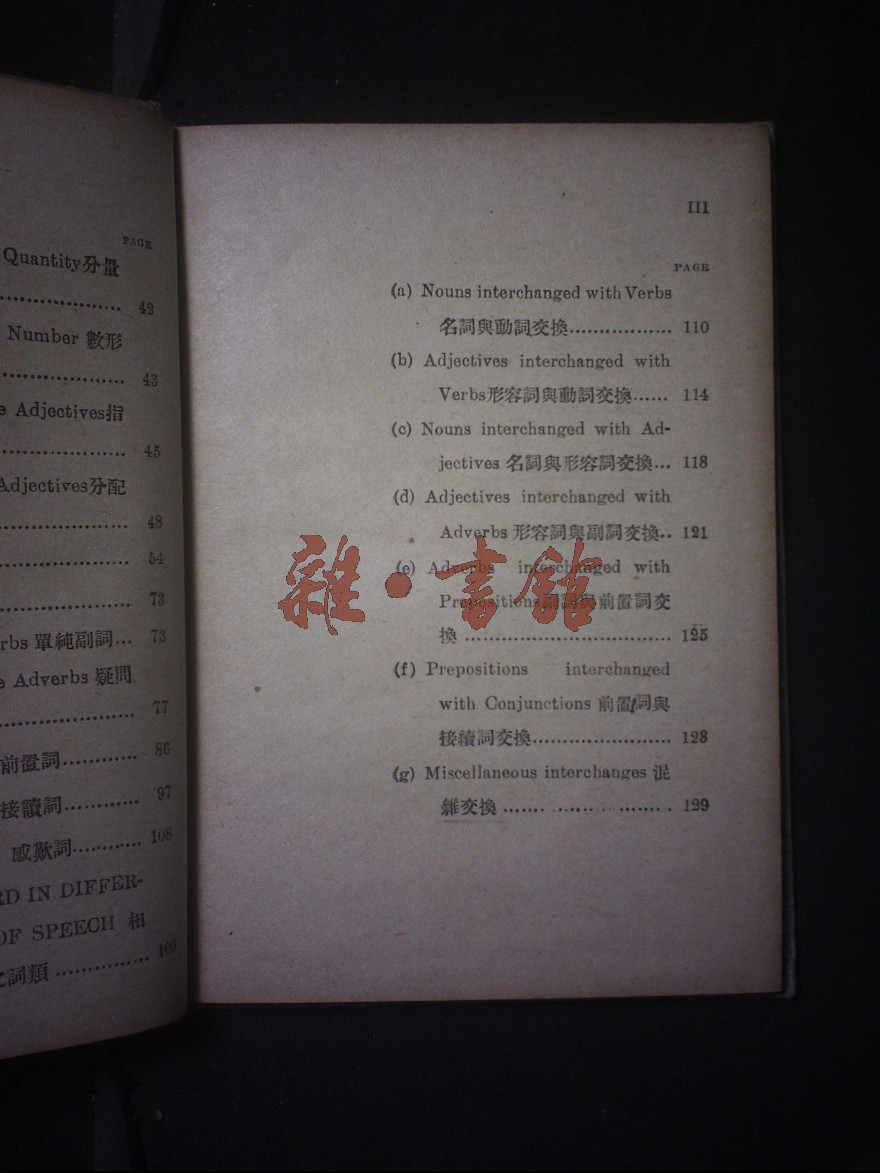 PAGE
Quantity分量
.................... 42
Number 數形
.................... 43
e Adjectives指
.................... 45
Adjectives分配
.................... 48
.................... 54
.................... 73
rbs 單純副詞... 73
e Adverbs 疑問
.................... 77
前置詞............ 86
接讀詞............ 97
感歎詞............ 108
RD IN DIFFER-
OF SPEECH 相
之詞類 ............... 109
III
PAGE
(a) Nouns interchanged with Verbs
名詞與動詞交換................. 110
(b) Adjectives interchanged with
Verbs形容詞與動詞交換...... 114
(c) Nouns interchanged with Ad-
jectives 名詞與形容詞交換... 118
(d) Adjectives interchanged with
Adverbs 形容詞與副詞交換.. 121
(e) Adverbs interchanged with
Prepositions副詞與前置詞交
換 .................................. 125
(f) Prepositions interchanged
with Conjunctions 前置詞與
接續詞交換....................... 128
(g) Miscellaneous interchanges 混
雜交換 ............................ 129
雜·書館